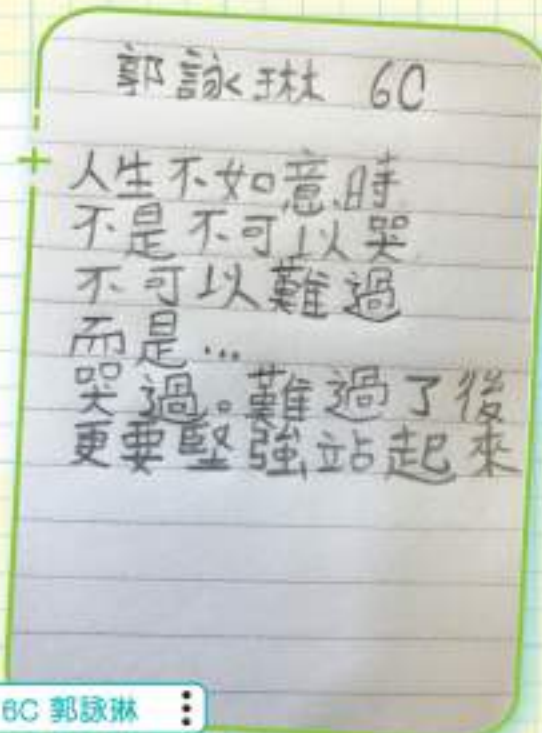 郭詠琳 6C
人生不如意時
不是不可以哭
不可以難過
而是...
哭過。難過了後
更要堅強站起來
6C 郭詠琳